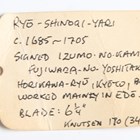 RYŌ-SHINOGI-YARI
C. 1685~1705
SIGNED IZUMO-NO-KAM
FUJIWARA-NO-YOSHITAK
HORIKAWA-RYŪ (KYOTO), B
WORKED MAINLY IN EDO.
BLADE: 6¼"
KNUTSEN 170 (34